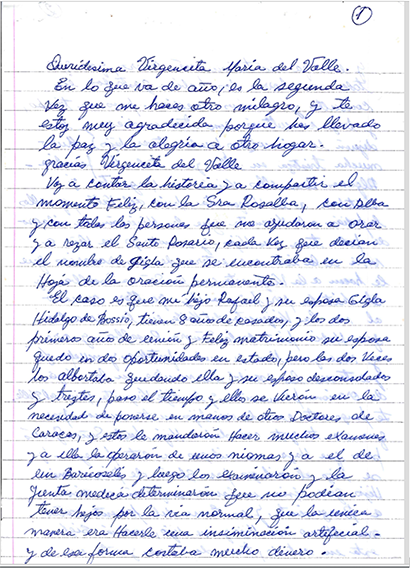 1
Queridisima Virgencita Maria del Valle.
En lo que va de año, es la segunda
Vez que me haces otro milagro, y te
estoy muy agradecida porque has llevado
la paz y la alegria a otro hogar.
gracias Virgencita del Valle
Voy a contar la historia y a compartir el
momento Feliz, con la Sra Rosalba, con Alba
y con todas las personas que me ayudaron a orar
y a rezar el Santo Rosario, cada Vez que decian
el nombre de Gigla que se encontraba en la
Hoja de la oración permanente.
El caso es que mi hijo Rafael y su esposa Gigla
Hidalgo de Bossio, tienen 8 años de casados, y los dos
primeros años de unión y Feliz matrimonio su esposa
quedo en dos oportunidades en estado, pero las dos Veces
los abortaba quedando ella y su esposo desconsolados
y tristes, paso el tiempo y ellos se Vieron en la
necesidad de ponerse en manos de otros Doctores de
Caracas, y estos le mandaron Hacer muchos examenes
y a ella la operaron de unos miomas y a el de
un Baricoseles y luego los examinaron y la
junta medica determinaron que no podian
tener hijos por la via normal, que la unica
manera era Hacerle una insiminación artificial.
y de esa forma costaba mucho dinero.